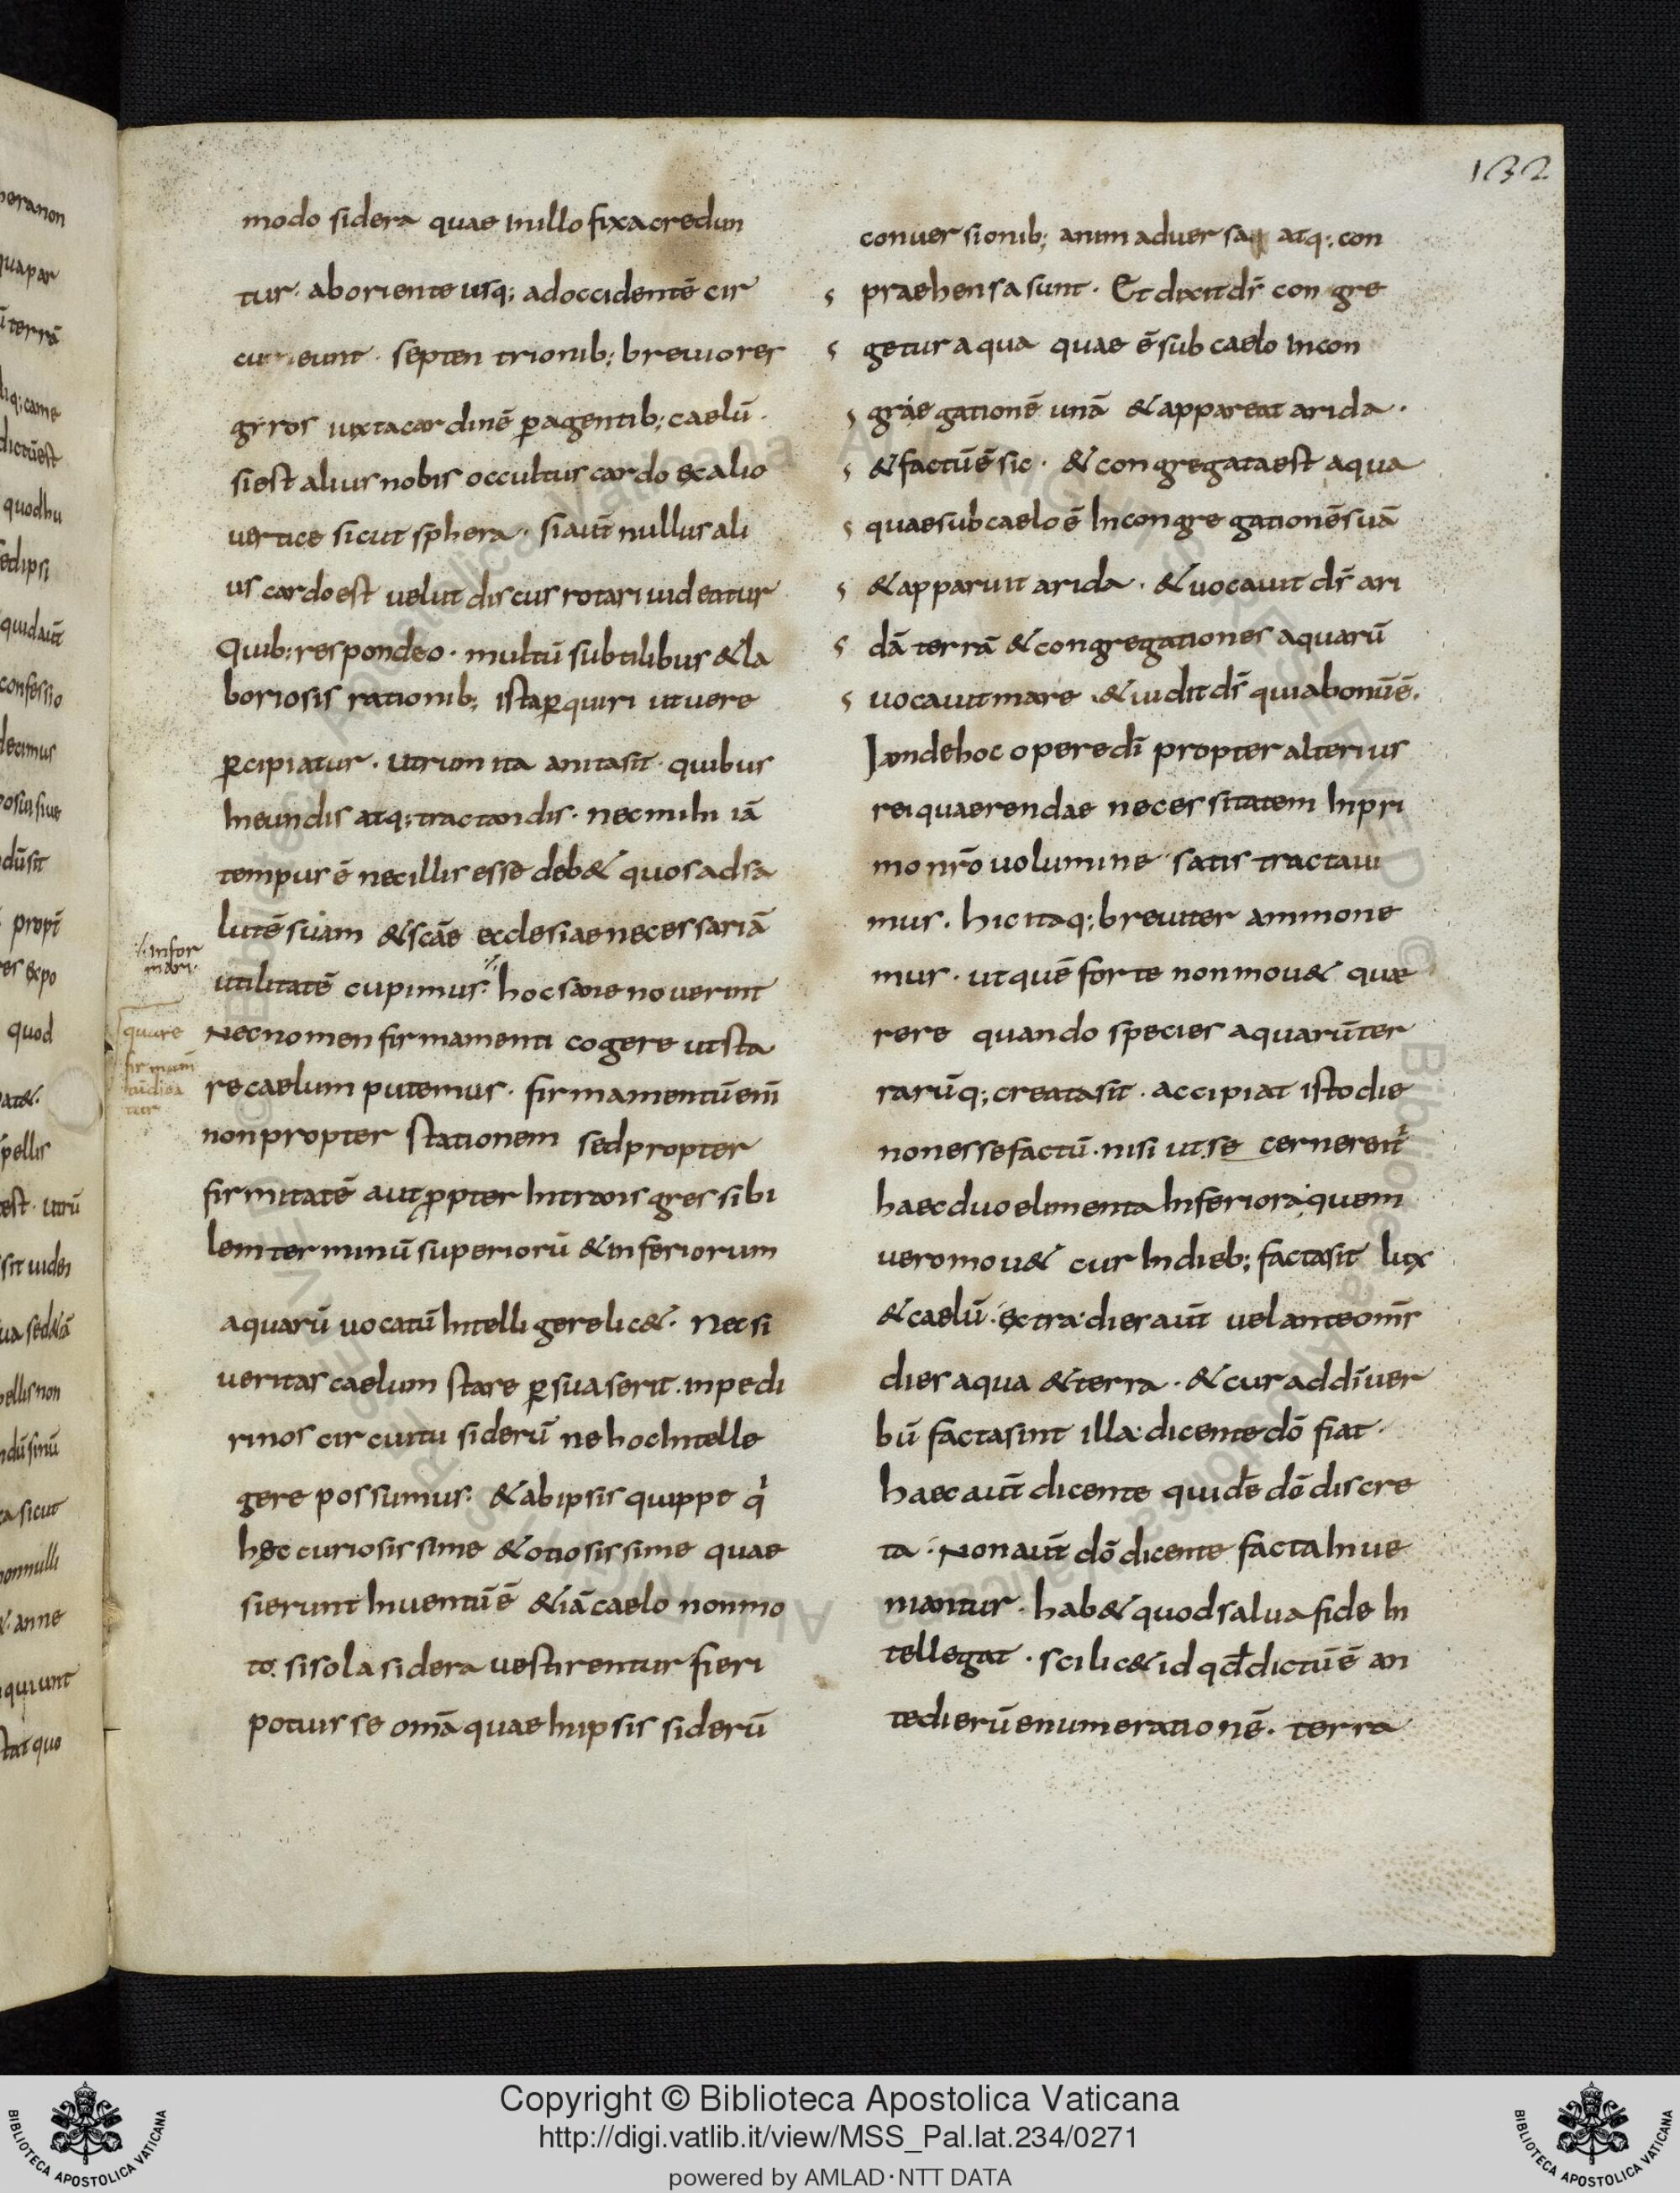 132
modo sidera quae inillo fixa credun
tur· aboriente usq; adoccidentē cir
cumeunt· septen trionib; breuiores
gyros iuxta cardinē ꝑagentib; caelū·
siest alius nobis occultus cardo exalio
uertice sicut sphera· siaut̄ nullus ali
us cardo est uelut discus rotari uideatur
Quib; respondeo· multū subtilibus & la
boriosis rationib; ista ꝑquiri ut uere
ꝑcipiatur· utrum ita an ita sit· quibus
Ineundis atq; tractandis· nec mihi iā
tempus ē nec illis esse deb& quos adsa
lutē suam & scāe ecclesiae necessariā
utilitatē cupimus· hoc sane nouerint
Nec nomen firmamenti cogere ut sta
re caelum putemus· firmamentū enī
non propter stationem sed propter
firmitatē aut ꝓpter Intransgressibi
lem terminū superiorū & inferiorum
aquarū uocatū Intelligere lic&· Nec si
ueritas caelum stare ꝑsuaserit· inpedi
ri nos circuitu siderū ne hoc Intelle
gere possumus· & abipsis quippe qi
hęc curiosissime & otiosissime quae
sierunt Inuentū ē & iā caelo non mo
to· si sola sidera uestirentur fieri
potuisse omā quae Inipsis siderū
./. infor
mari·
quare
firmam̄
tū dica
tur
conuersionib; animaduersa atq; con
praehensa sunt· Et dixit dr̄ congre
getur aqua quae ē sub caelo Incon
graegationē unā & appareat arida·
& factū ē sic· & congregata est aqua
quae sub caelo ē In congregationē suā
& apparuit arida· & uocauit dr̄ ari
dā terrā & congregationes aquarū
uocauit mare & uidit dr̄ quia bonū ē·
Iam de hoc opere dī propter alterius
rei quaerendae necessitatem Inpri
mo nr̄o uolumine satis tractaui
mus· hic itaq; breuiter ammone
mus· ut quē forte non mou& quae
rere quando species aquarū ter
rarūq; creata sit· accipiat isto die
non esse factū· nisi ut se cernerent̄
haec duo elimenta Inferiora· quem
uero mou& cur Indieb; facta sit lux
& caelū· extra dies aut̄ uel ante om̄s
dies aqua & terra· & cur ad dī uer
bū facta sint illa· dicente dō fiat·
haec aut̄ dicente quidē dō discre
ta· Non aut̄ dō dicente facta Inue
niantur· hab& quod salua fide In
tellegat· scilic& id qd̄ dictū ē an
te dierū enumerationē· terra
Copyright © Biblioteca Apostolica Vaticana
http://digi.vatlib.it/view/MSS_Pal.lat.234/0271
powered by AMLAD·NTT DATA